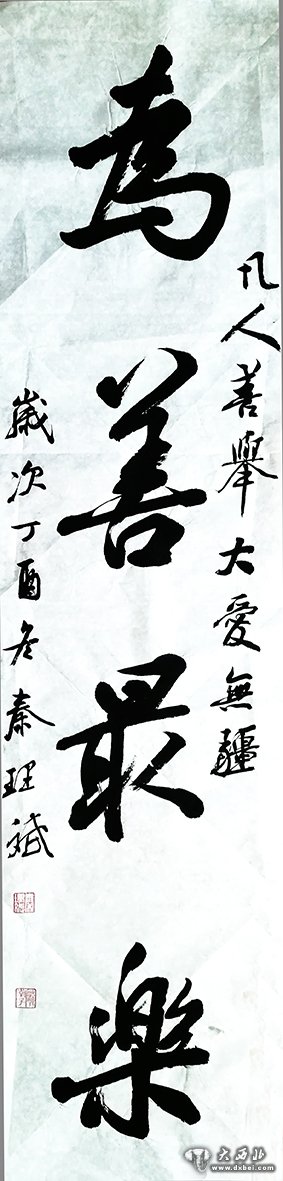 凡人善舉大愛無疆
為善最樂
歲次丁酉冬秦理斌
大西北
www.dxbei.com